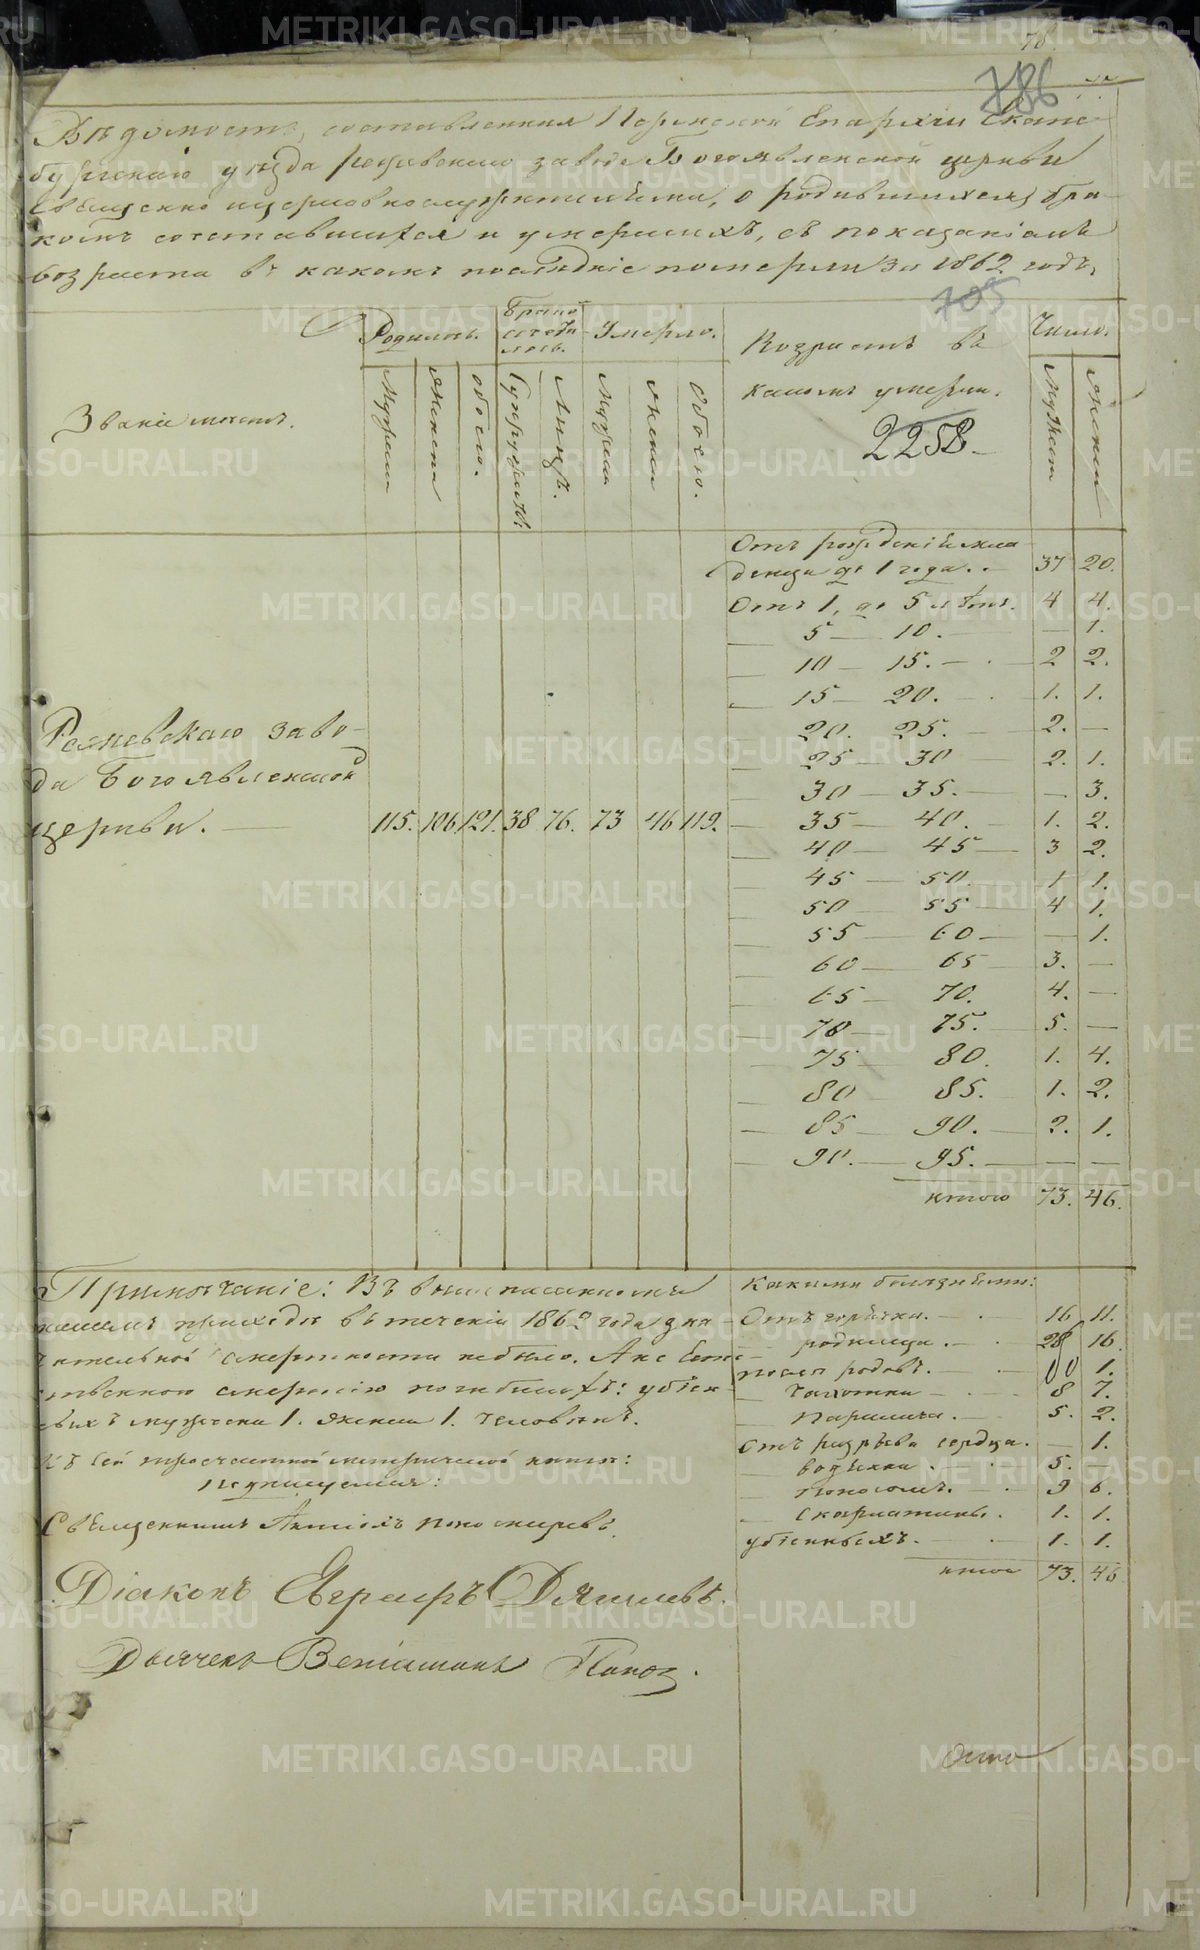 78
786
Вѣдомость, составленная Пермской Епархіи Екате-
бургскаго уѣзда завода Богоявленской церкви
Священно церковнослужителями, о родившихся, бра-
комъ сочетавшихся и умершихъ, съ показаніемъ
возраста въ какомъ послѣдніе померли за 1862 годъ,
705
Родилось. Брако сочета лось. Умерло. Возрастъ въ какомъ умерли. Число.
2258
Званіе мѣстъ. Мужеска Женска обоего. Супружествъ. Лицъ. Мужеска Женска Обоего. Мужеска Женска
Отъ рожденія мла
денца до 1 года. 37 20.
Отъ 1, до 5 лѣтъ. 4 4.
5 — 10. — 1.
10 — 15. — 2 2.
15 — 20. 1. 1.
20. 25. — 2. —
25 — 30 — 2. 1.
30 — 35. — — 3.
Режевскаго заво-
да Богоявленской
церкви. — 115. 106. 121. 38 76. 73 46 119.
35 — 40. 1. 2.
40 — 45 — 3 2.
45 — 50. 1 1.
50 — 55 — 4 1.
55 — 60 — — 1.
60 — 65 — 3. —
65 — 70. 4. —
70 — 75. 5. —
75 — 80. 1. 4.
80 85. 1. 2.
85 — 90. — 2. 1.
90. — 95. — — —
итого 73. 46.
Примѣчаніе: Въ вышписанномъ
нашемъ приходѣ въ теченіи 1862 года зна-
чительной смертности небыло. А не Есте-
ственною смертію погибшихъ: убіен-
ныхъ мужеска 1. женска 1. человѣкъ.
Къ сей метрической книги:
подписуемся:
Священникъ
Діаконъ Евграфъ
Дьячекъ Веніаминъ Попов.
Какими болезнями:
Отъ горячки. — 16 11.
родимца. — 28 16.
после родовъ. — 1.
чахотки — 8 7.
Паралича. — 5. 2.
Отъ разрыва сердца. — 1.
водянки 5. —
поносомъ. — 9 6.
Скарлатины. 1. 1.
убіенныхъ. — 1. 1.
итого 73. 46
METRIKI.GASO-URAL.RU